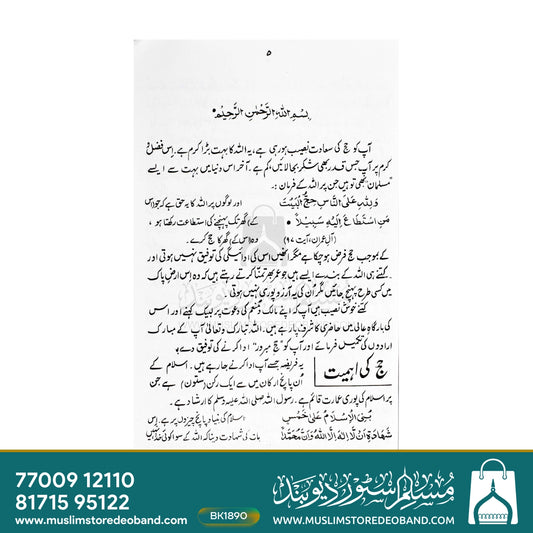 ۵
بسم اللہ الرحمٰن الرحیم
آپ کو حج کی سعادت نصیب ہو رہی ہے، یہ اللہ کا بہت بڑا کرم ہے۔ اس فضل و
کرم پر آپ جس قدر بھی شکر بجا لائیں، کم ہے۔ آخر اس دنیا میں بہت سے ایسے
مسلمان بھی تو ہیں جن پر اللہ کے فرمان :۔
وَلِلّٰہِ عَلَی النَّاسِ حِجُّ الْبَیْتِ اور لوگوں پر اللہ کا یہ حق ہے کہ جو (اللہ
مَنِ اسْتَطَاعَ اِلَیْہِ سَبِیْلًا کے) گھر تک پہنچنے کی استطاعت رکھتا ہو،
(آل عمران، آیت ۹۷) وہ (اس کے) گھر کا حج کرے۔
کے بموجب حج فرض ہو چکا ہے مگر انھیں اس کی ادائیگی کی توفیق نہیں ہوتی اور
کتنے ہی اللہ کے بندے ایسے ہیں جو عمر بھر تمنا کرتے رہتے ہیں کہ وہ اس ارضِ پاک
میں کسی طرح پہنچ جائیں مگر ان کی یہ آرزو پوری نہیں ہوتی۔
کتنے خوش نصیب ہیں آپ کہ اپنے مالک و منعم کی دعوت پر لبیک کہنے اور اس
کی بارگاہِ عالی میں حاضری کا شرف پا رہے ہیں۔ اللہ تبارک و تعالیٰ آپ کے مبارک
ارادوں کی تکمیل فرمائے اور آپ کو "حج مبرور" ادا کرنے کی توفیق دے۔
حج کی اہمیت
یہ فریضہ جسے آپ ادا کرنے جا رہے ہیں۔ اسلام کے
اُن پانچ ارکان میں سے ایک رکن (ستون) ہے جن
پر اسلام کی پوری عمارت قائم ہے۔ رسول اللہ صلی اللہ علیہ وسلم کا ارشاد ہے۔
بُنِیَ الْاِسْلَامُ عَلٰی خَمْسٍ اسلام کی بنیاد پانچ چیزوں پر ہے۔ اس
شَھَادَۃِ اَنْ لَّا اِلٰہَ اِلَّا اللہُ وَاَنَّ مُحَمَّدًا بات کی شہادت دینا کہ اللہ کے سوا کوئی خدا نہیں
77009 12110
81715 95122
www.muslimstoredeoband.com
BK1890
مسلم اسٹور دیوبند
WWW.MUSLIMSTOREDEOBAND.COM